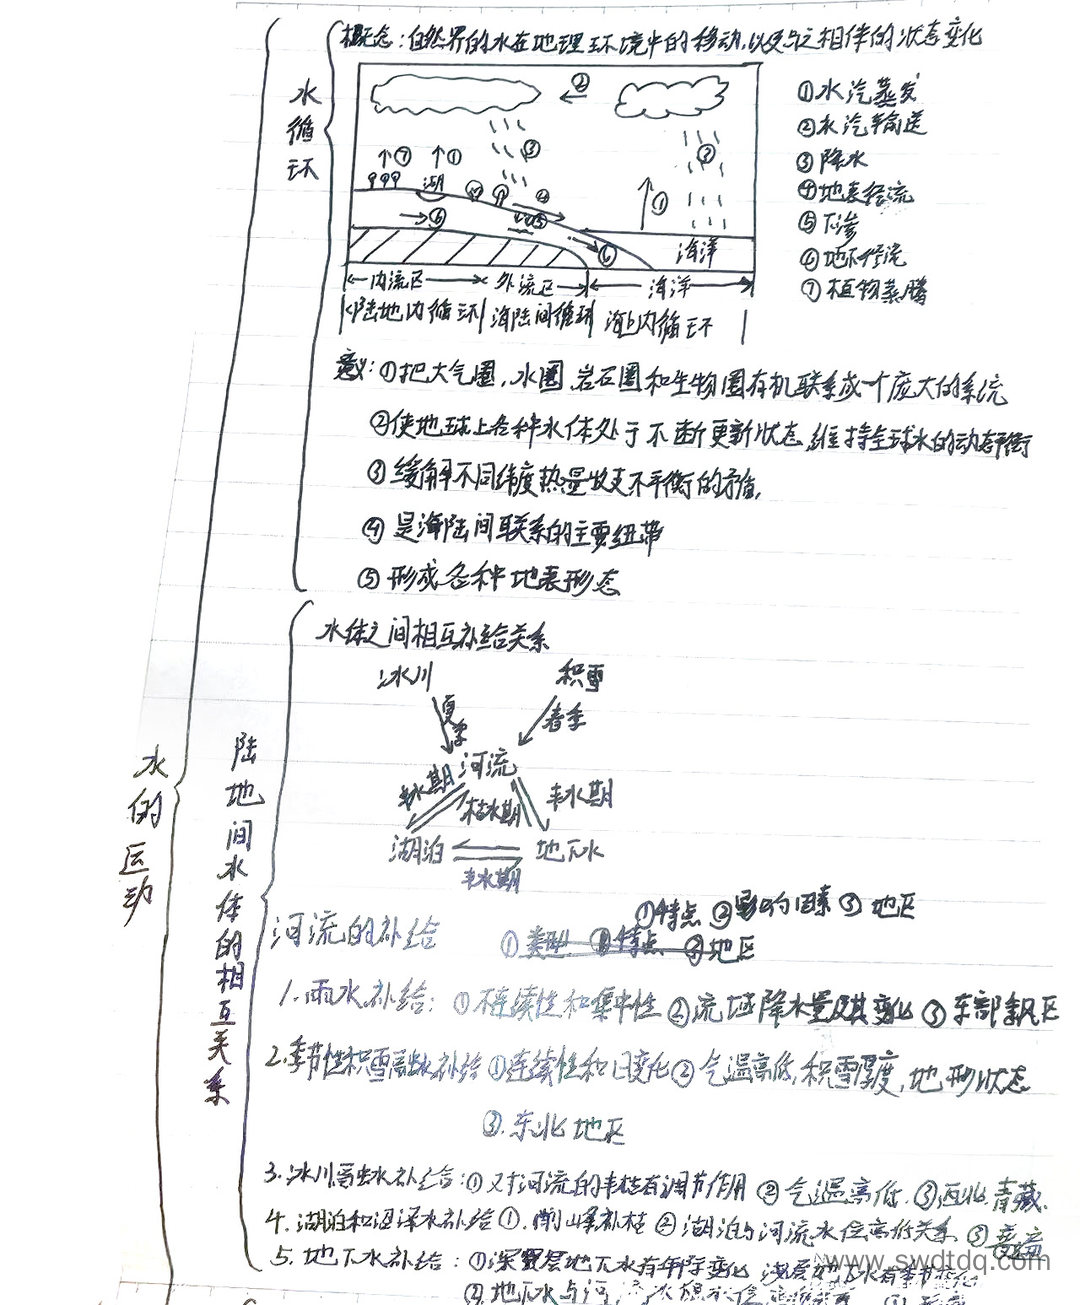 概念:自然界的水在地理环境中的移动,以及与之相伴的状态变化
水循环
①水汽蒸发
②水汽输送
③降水
④地表径流
⑤下渗
⑥地下径流
⑦植物蒸腾
②
③
③
⑦
①
湖
④
①
⑥
⑤
⑥
海洋
内流区
外流区
海洋
陆地内循环
海陆间循环
海上内循环
意义:①把大气圈,水圈,岩石圈和生物圈有机联系成一个庞大的系统
②使地球上各种水体处于不断更新状态,维持全球水的动态平衡
③缓解不同纬度热量收支不平衡的矛盾,
④是海陆间联系的主要纽带
⑤形成各种地表形态
水的运动
陆地间水体的相互关系
水体之间相互补给关系
冰川
积雪
夏季
春季
河流
丰水期
枯水期
丰水期
湖泊
地下水
丰水期
①特点 ②影响因素 ③地区
河流的补给
①类型 ②特点 ③地区
1.雨水补给:①不连续性和集中性 ②流域降水量及其变化 ③东部季风区
2.季节性积雪融水补给①连续性和日变化②气温高低,积雪厚度,地形状态
③.东北地区
3.冰川融水补给:①对河流的丰枯有调节作用 ②气温高低.③西北,青藏.
4.湖泊和沼泽水补给①.削峰补枯②湖泊与河流水位高低关系 ③
5.地下水补给:①深层地下水有年际变化,浅层地下水有季节变化
②地下水与河流
www.swdtdq.com